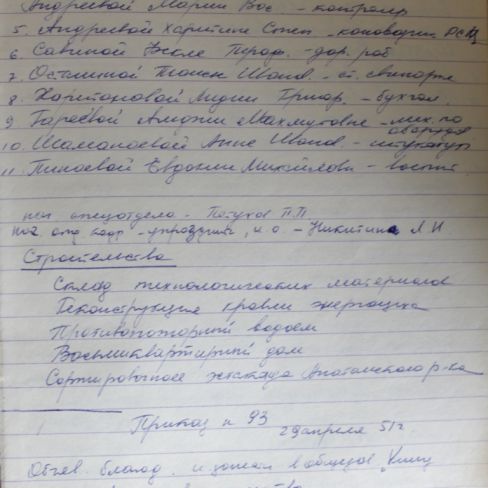 Андреевой Марии Вас. - контролер
5. Андреевой Харитине Степ. - коновозчик РСЦ
6. Савиной Текле Проф. - дор. раб
7. Осташиной Таисии Иванов. - ст. свинарка
8. Харитоновой Лидии Григор. - бухгал.
9 Гареевой Амджии Махмутовне - мех. по
оборудов
10. Шамановой Анне Иванов. - штукатур
11. Пинаевой Евдокии Михайловн - воспит.
нач спецотдела - Петухов П.П
нач отд кадр - упразднить, и.о. - Никитина Л И.
Строительства
Склад технологических материалов
Реконструкция кровли энергоцеха
Противопожарный водоем
Восьмиквартирный дом
Сортировочная эстакада Азиатского р-ка
Приказ н 93
29 апреля 51 г.
Объяв. благод. и занести в общезав. Книгу